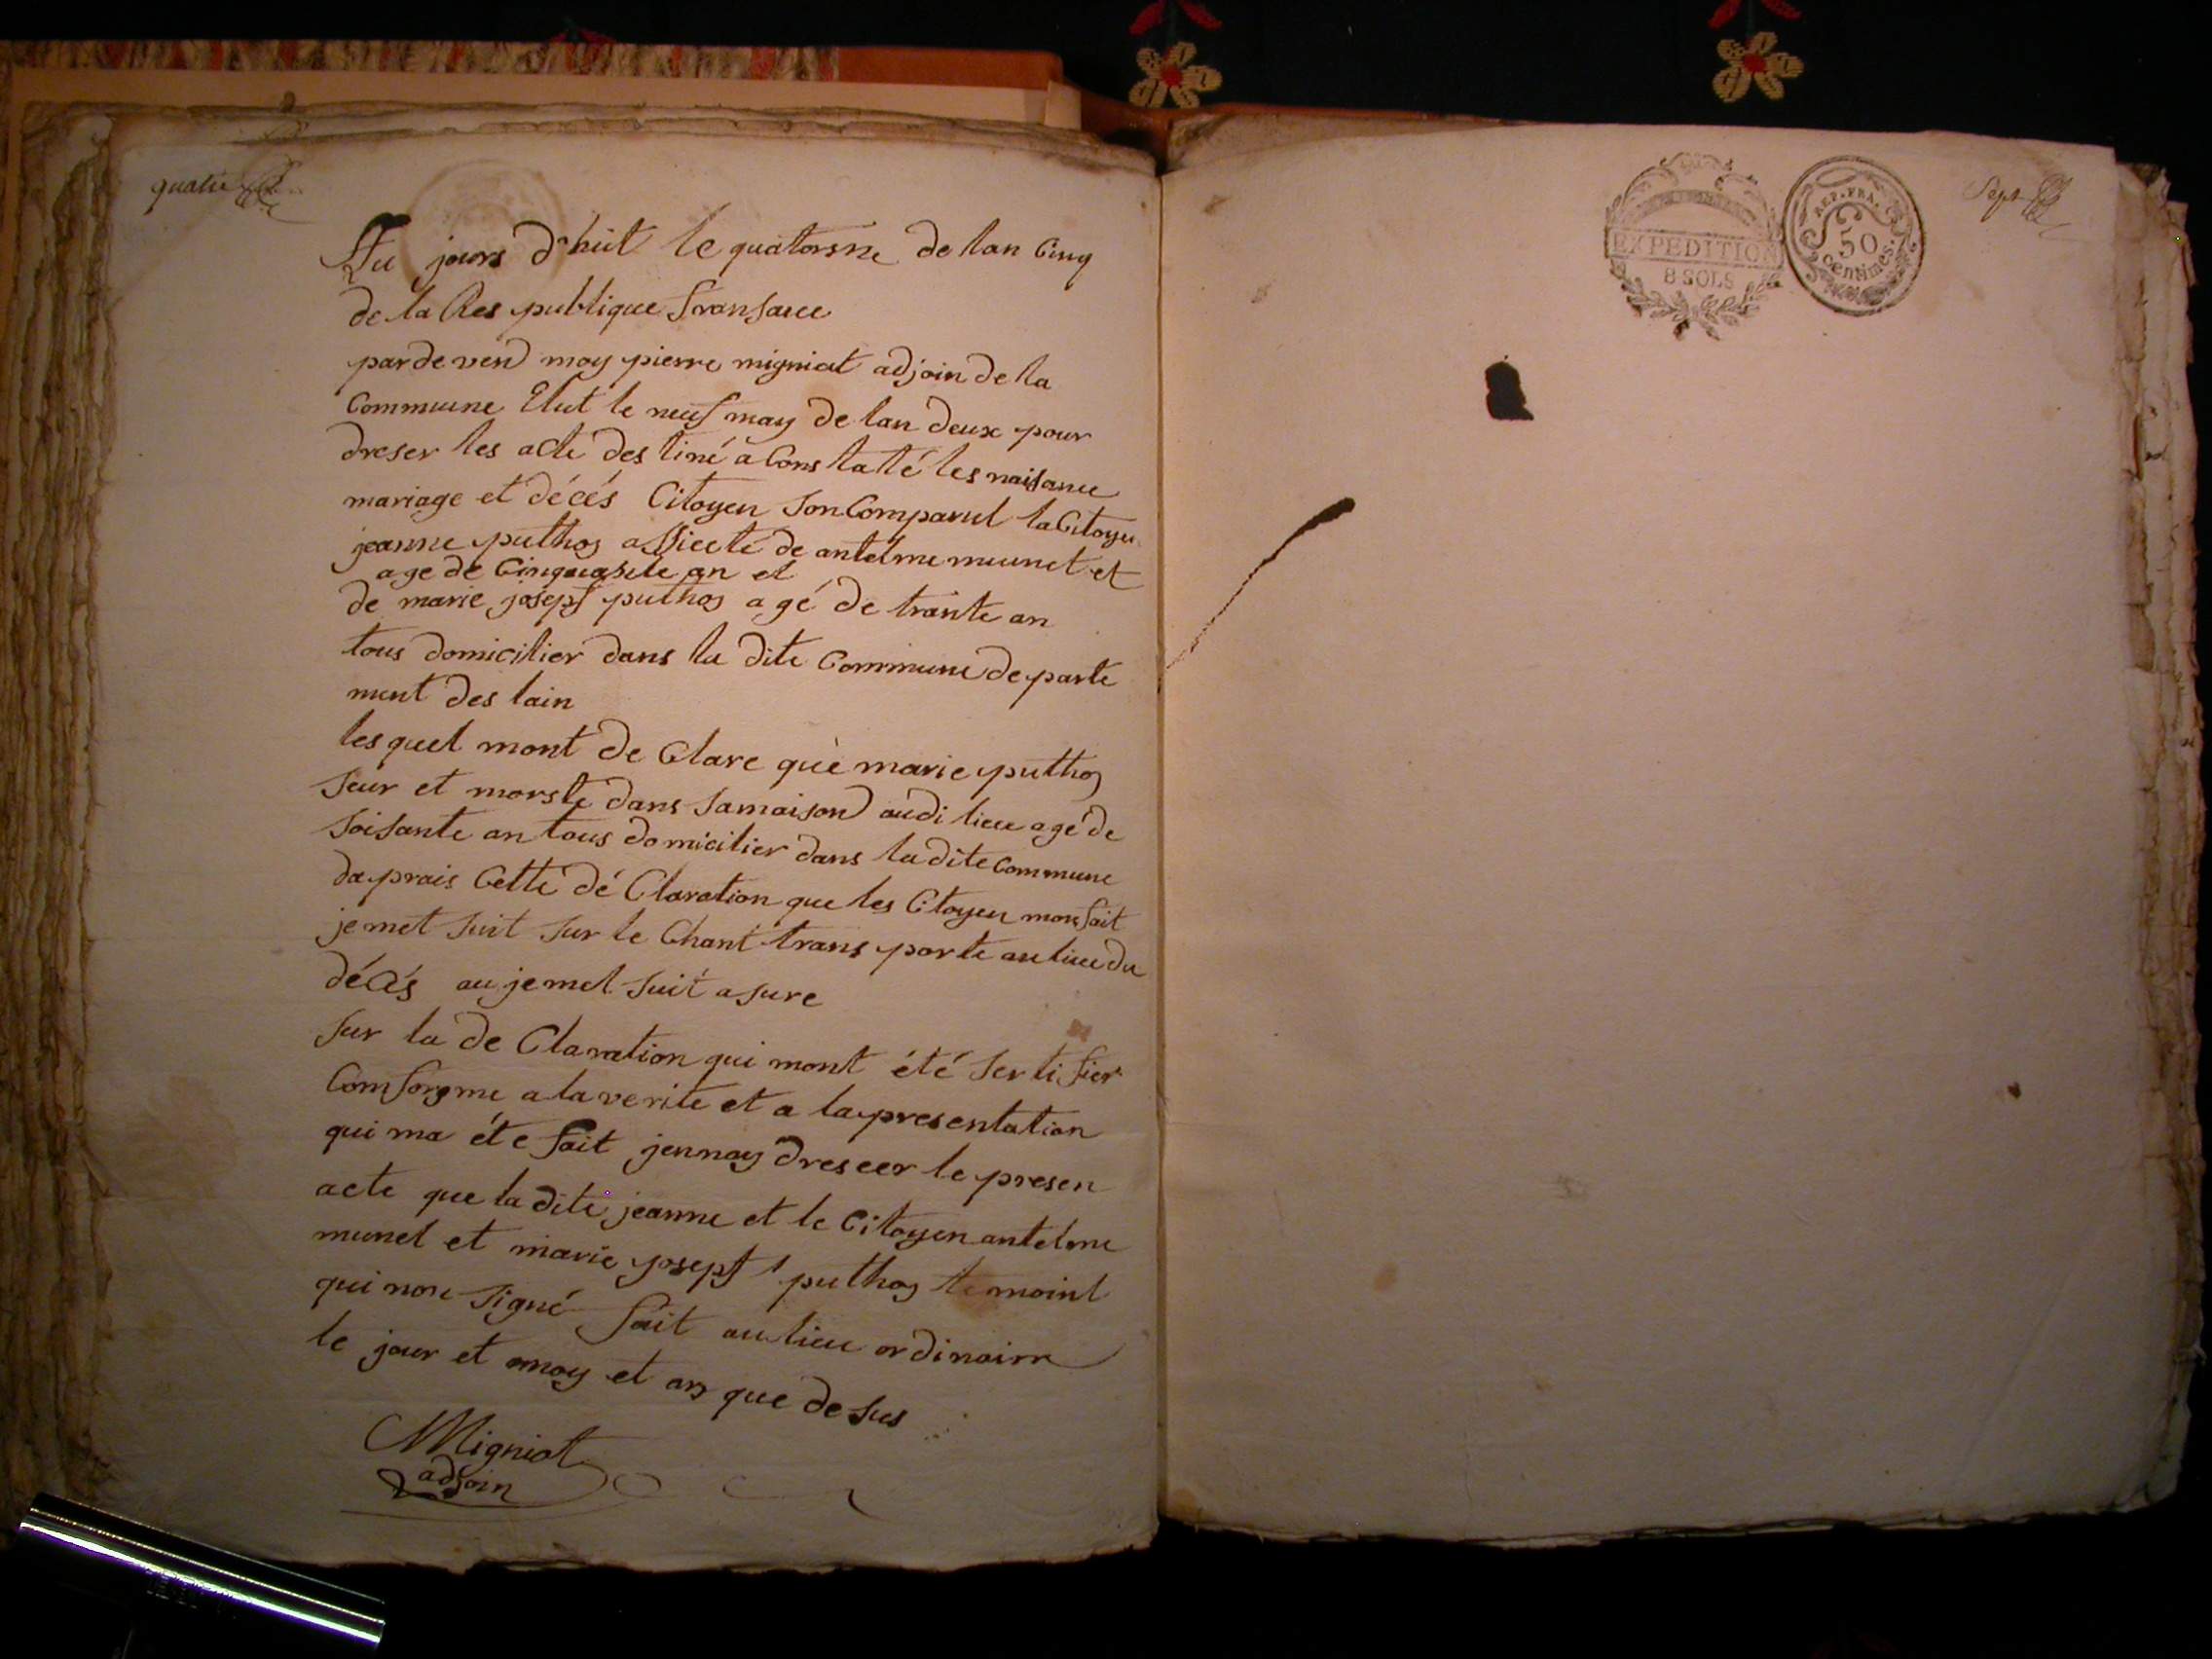 quatre
Au jours d'huit le quatorsne de lan Cinq
de la Res publique fransaice
par de vend moy pierre migniat adjoin de la
Commune Elut le neuf may de lan deux pour
dreser les acte des tiné a Constaté les naisance
mariage et décés Citoyen Son Comparut la Citoyen
jeanne puthoz assiecté de antelme meunet et
age de Cinquante an et
de marie josepf puthoz agé de trante an
tous domicilier dans la dite Commune de parte
ment des lain
lesquel mont de Clare que marie puthoz
seur et morste dans sa maison audi lieu agé de
soisante an tous domicilier dans la dite Commune
daprais Cette dé Claration que les Citoyen mons fait
je met suit sur le Chant trans porte au lieu du
décés au je met suit asure
sur la de Claration qui mont été sertifier
Comforgme a la verite et a la presentation
qui ma éte fait jennay dreseer le presen
acte que la dite jeanne et le Citoyen antelme
munet et marie josepf puthoz temoint
qui non signé fait au lieu ordinairre
le jour et moy et an que desus
Migniat
adjoin
EXPEDITION
8 SOLS
REP. FRA.
50
centimes.
Sept